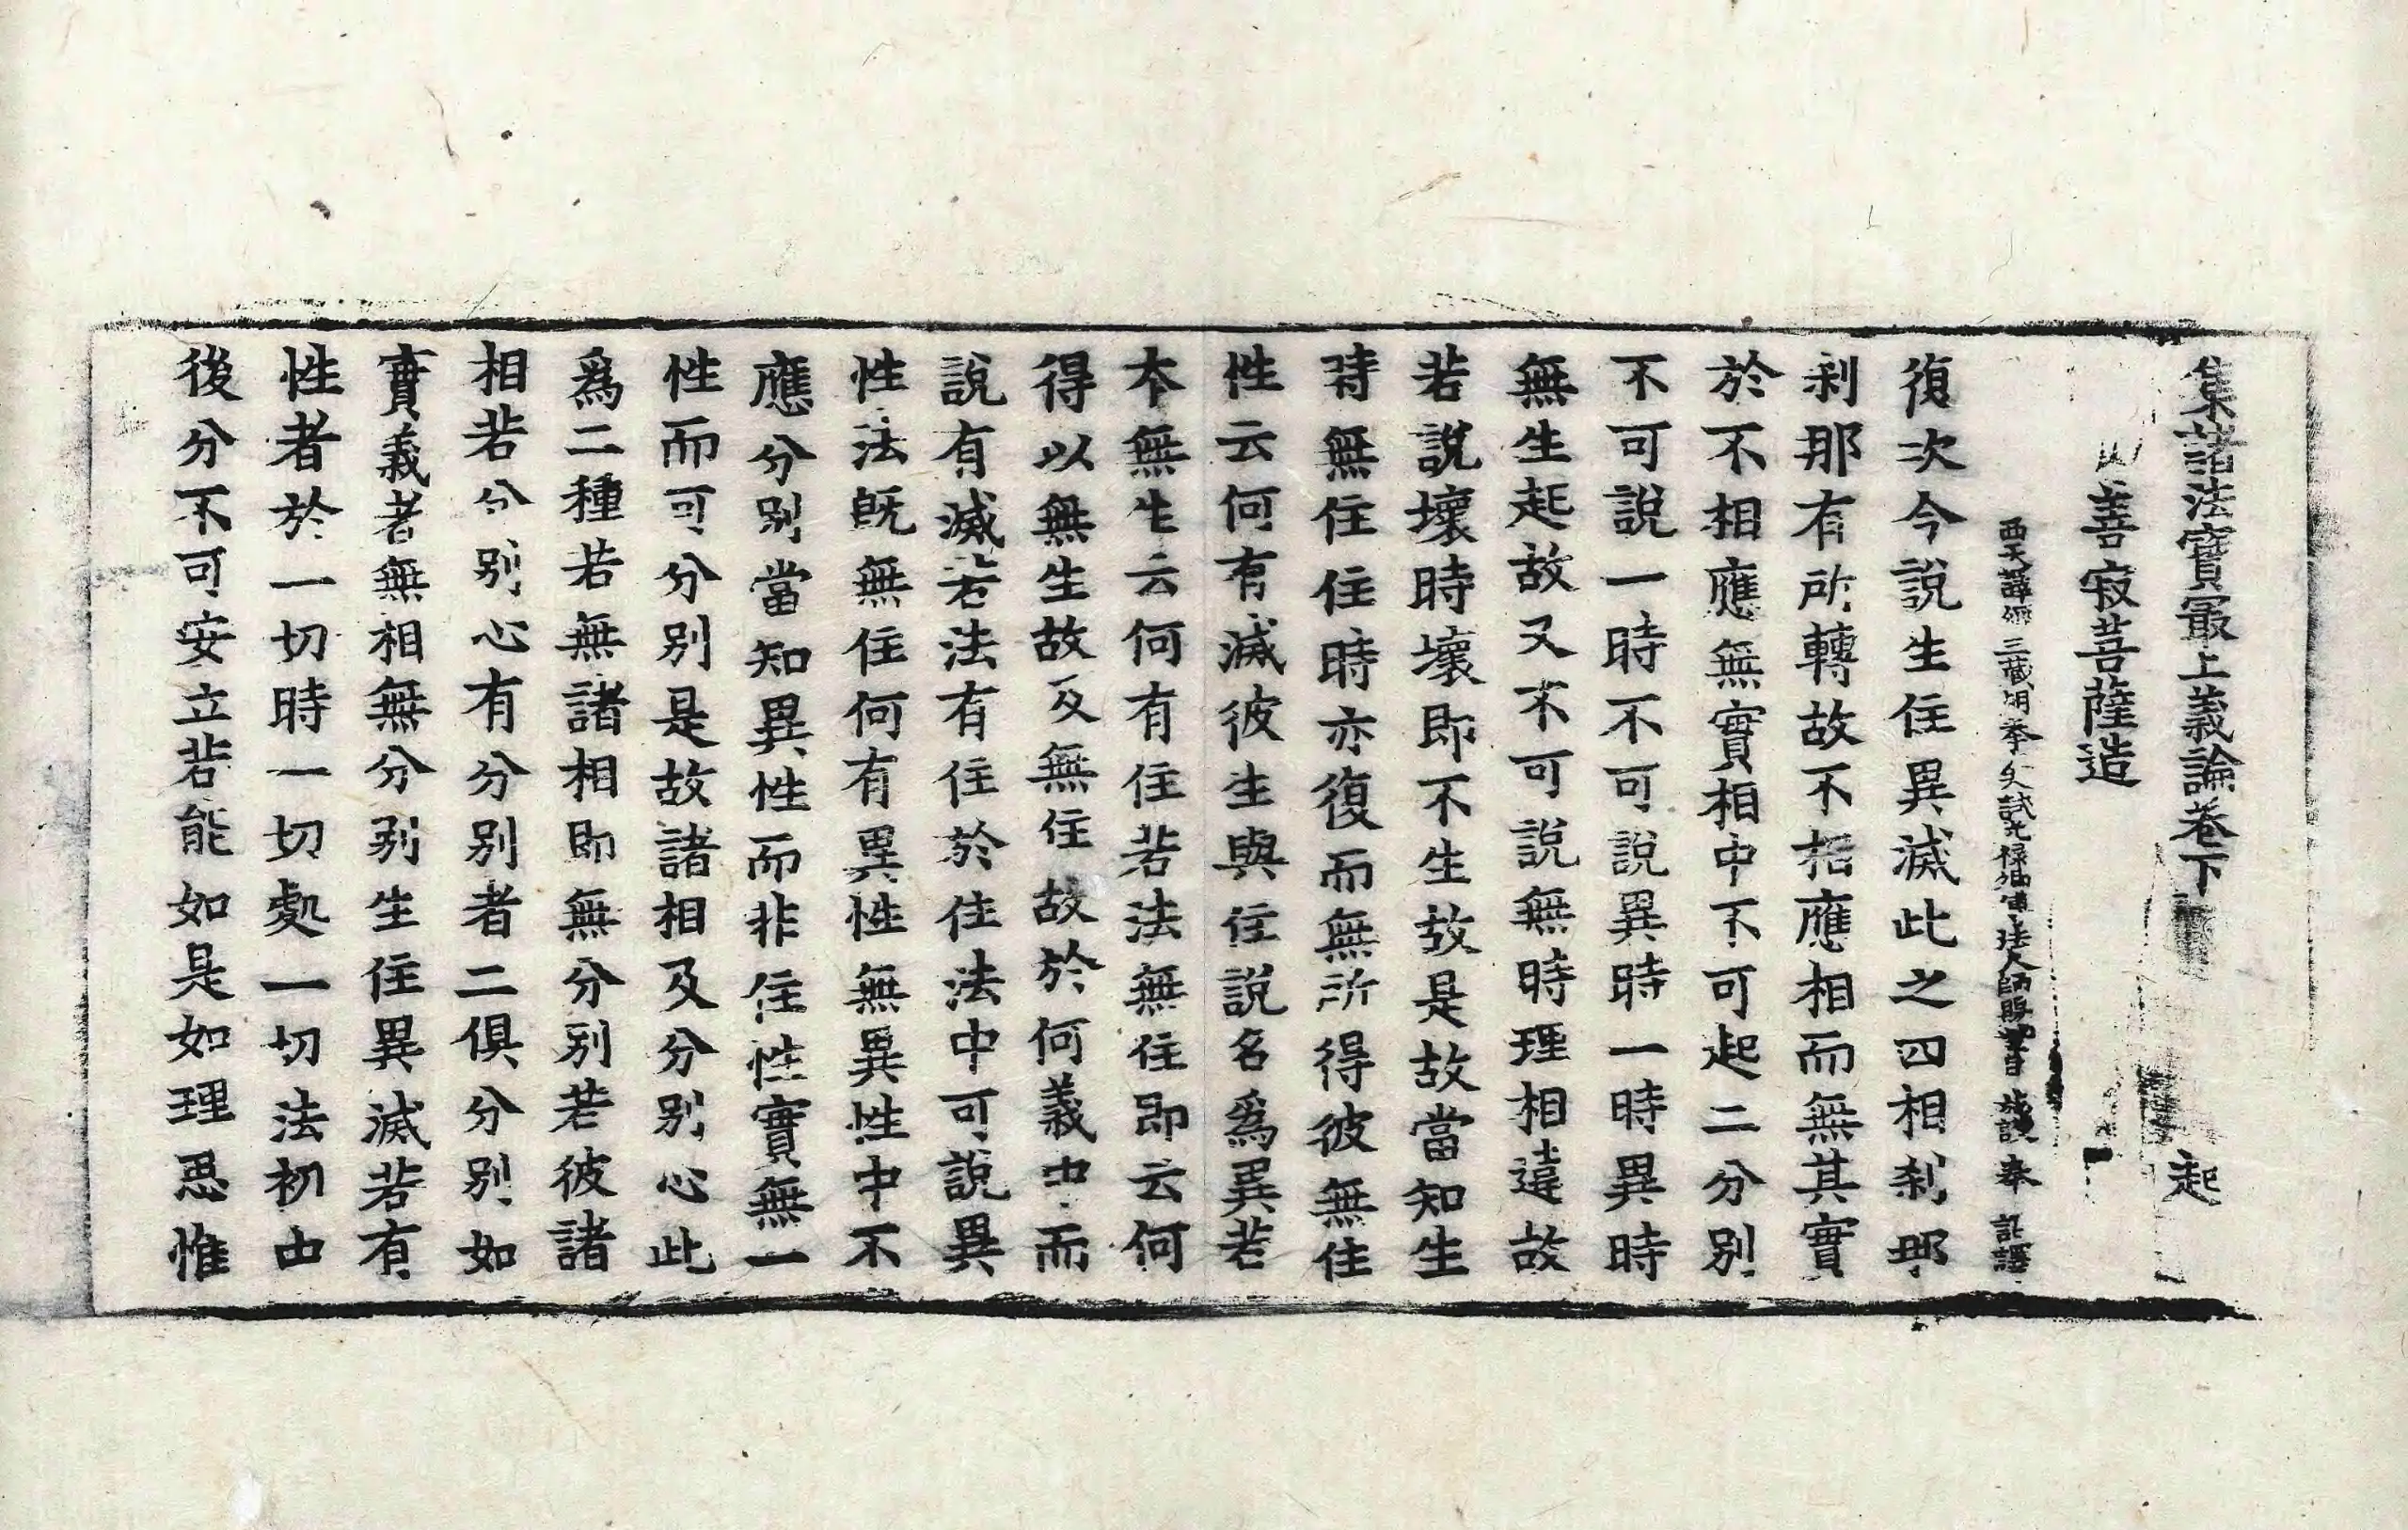 集諸法寶最上義論卷下 起
善寂菩薩造
西天譯經三藏朝奉大夫試光祿卿傳法大師賜紫臣施護奉 詔譯
復次今說生住異滅此之四相刹那
刹那有所轉故不相應相而無其實
於不相應無實相中不可起二分別
不可說一時不可說異時一時異時
無生起故又不可說無時理相違故
若說壞時壞即不生故是故當知生
時無住住時亦復而無所得彼無住
性云何有滅彼生與住說名爲異若
本無生云何有住若法無住即云何
得以無生故及無住故於何義中而
說有滅若法有住於住法中可說異
性法旣無住何有異性無異性中不
應分別當知異性而非住性實無一
性而可分別是故諸相及分別心此
爲二種若無諸相即無分別若彼諸
相若分別心有分別者二俱分別如
實義者無相無分別生住異滅若有
性者於一切時一切處一切法初中
後分不可安立若能如是如理思惟